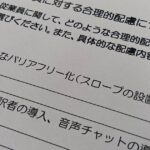 員に対する合理的配慮に
従業員に関して、どのような合理的配
びください。また、具体的な配慮内容
なバリアフリー化（スロープの設置
訳者の導入、音声チャットの導